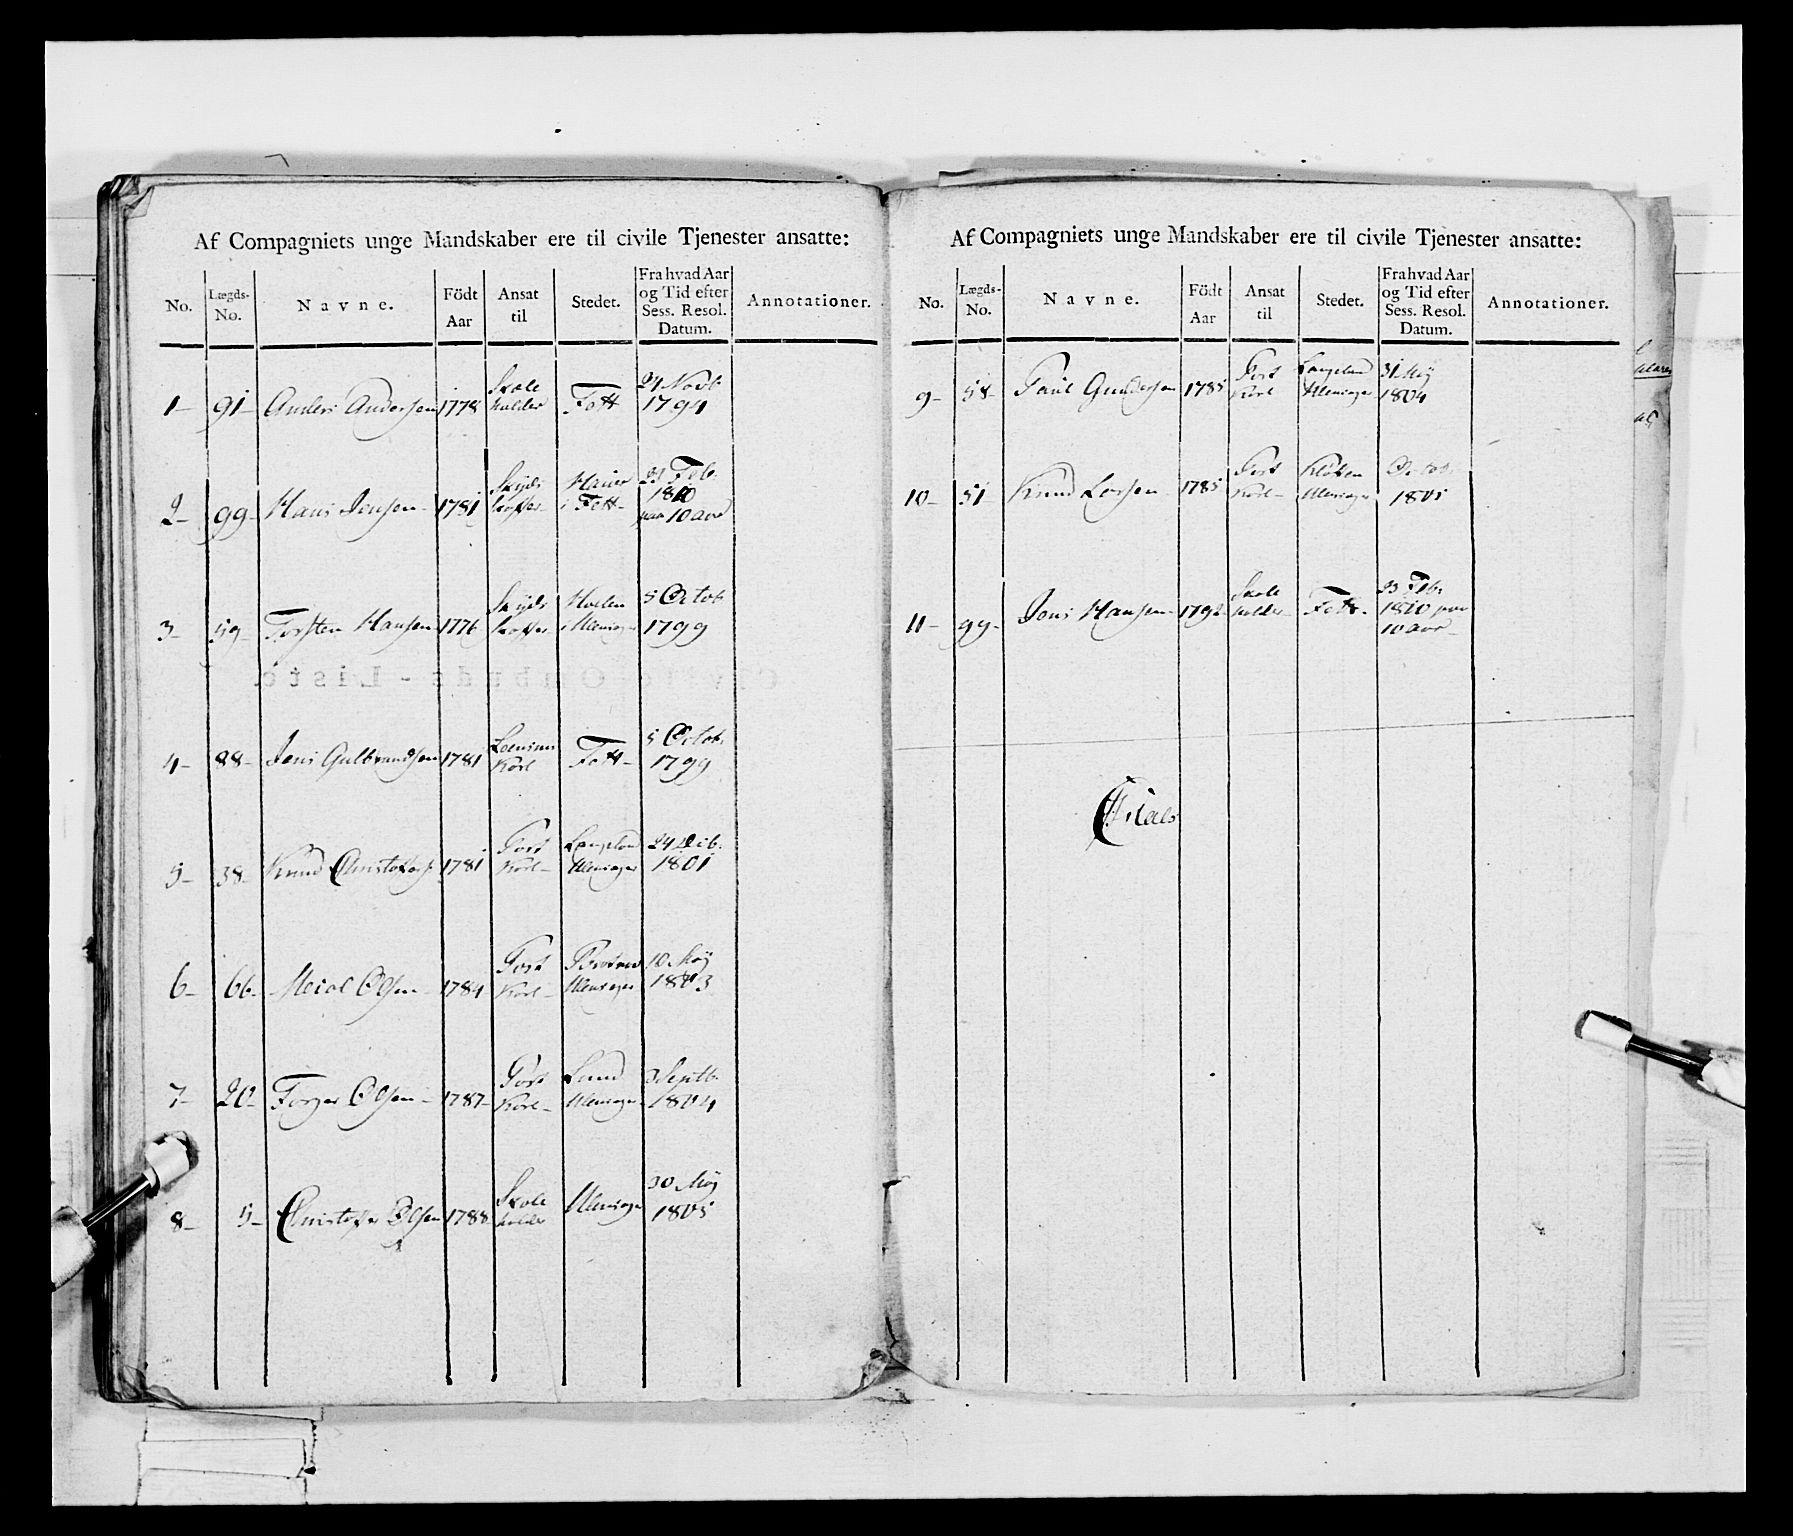 Af Compagniets unge Mandskaber ere til civile Tjenester ansatte:
No. Lægds-No. Navne. Födt Aar Ansat til Stedet. Fra hvad Aar og Tid efter Sess. Resol. Datum. Annotationer.
1- 91- Anders Andersen 1778 Skole holder Fett 1794
2- 99- Hans Jensen- 1781 Skyds skaffer- i Fett- Feb. 1810 paa 10 aar
3- 59- Torsten Hansen 1776 Skyds skaffer Ullensager 5 Octob 1799
4- 88- Jens Gulbrandsen 1781 Karl Fett- 5 Octob. 1799
5- 38- Knud Christophers. 1781 Post Karl- Langeland Ullensager 1801
6- 66- Olsen- 1784 Post Karl- Ullensager 10 Maÿ 1803
7- 20- Olsen- 1787- Post Karl- Lund Ullensager 3 Septb. 1804
8- 5- Christopher Olsen 1788 Skole holder Ullensager 30 Maÿ 1805
Af Compagniets unge Mandskaber ere til civile Tjenester ansatte:
No. Lægds-No. Navne. Födt Aar Ansat til Stedet. Fra hvad Aar og Tid efter Sess. Resol. Datum. Annotationer.
9- 58- Paul Gundersen 1785 Post Karl Langeland Ullensager 31 Maÿ 1804
10- 51 Knud Larsen- 1785 Post Karl- Kløften Ullensager Octob. 1805
11- 99- Jens Hansen- 1792- Skole holder- Fett- 23 Feb. 1810 paa 10 aar-